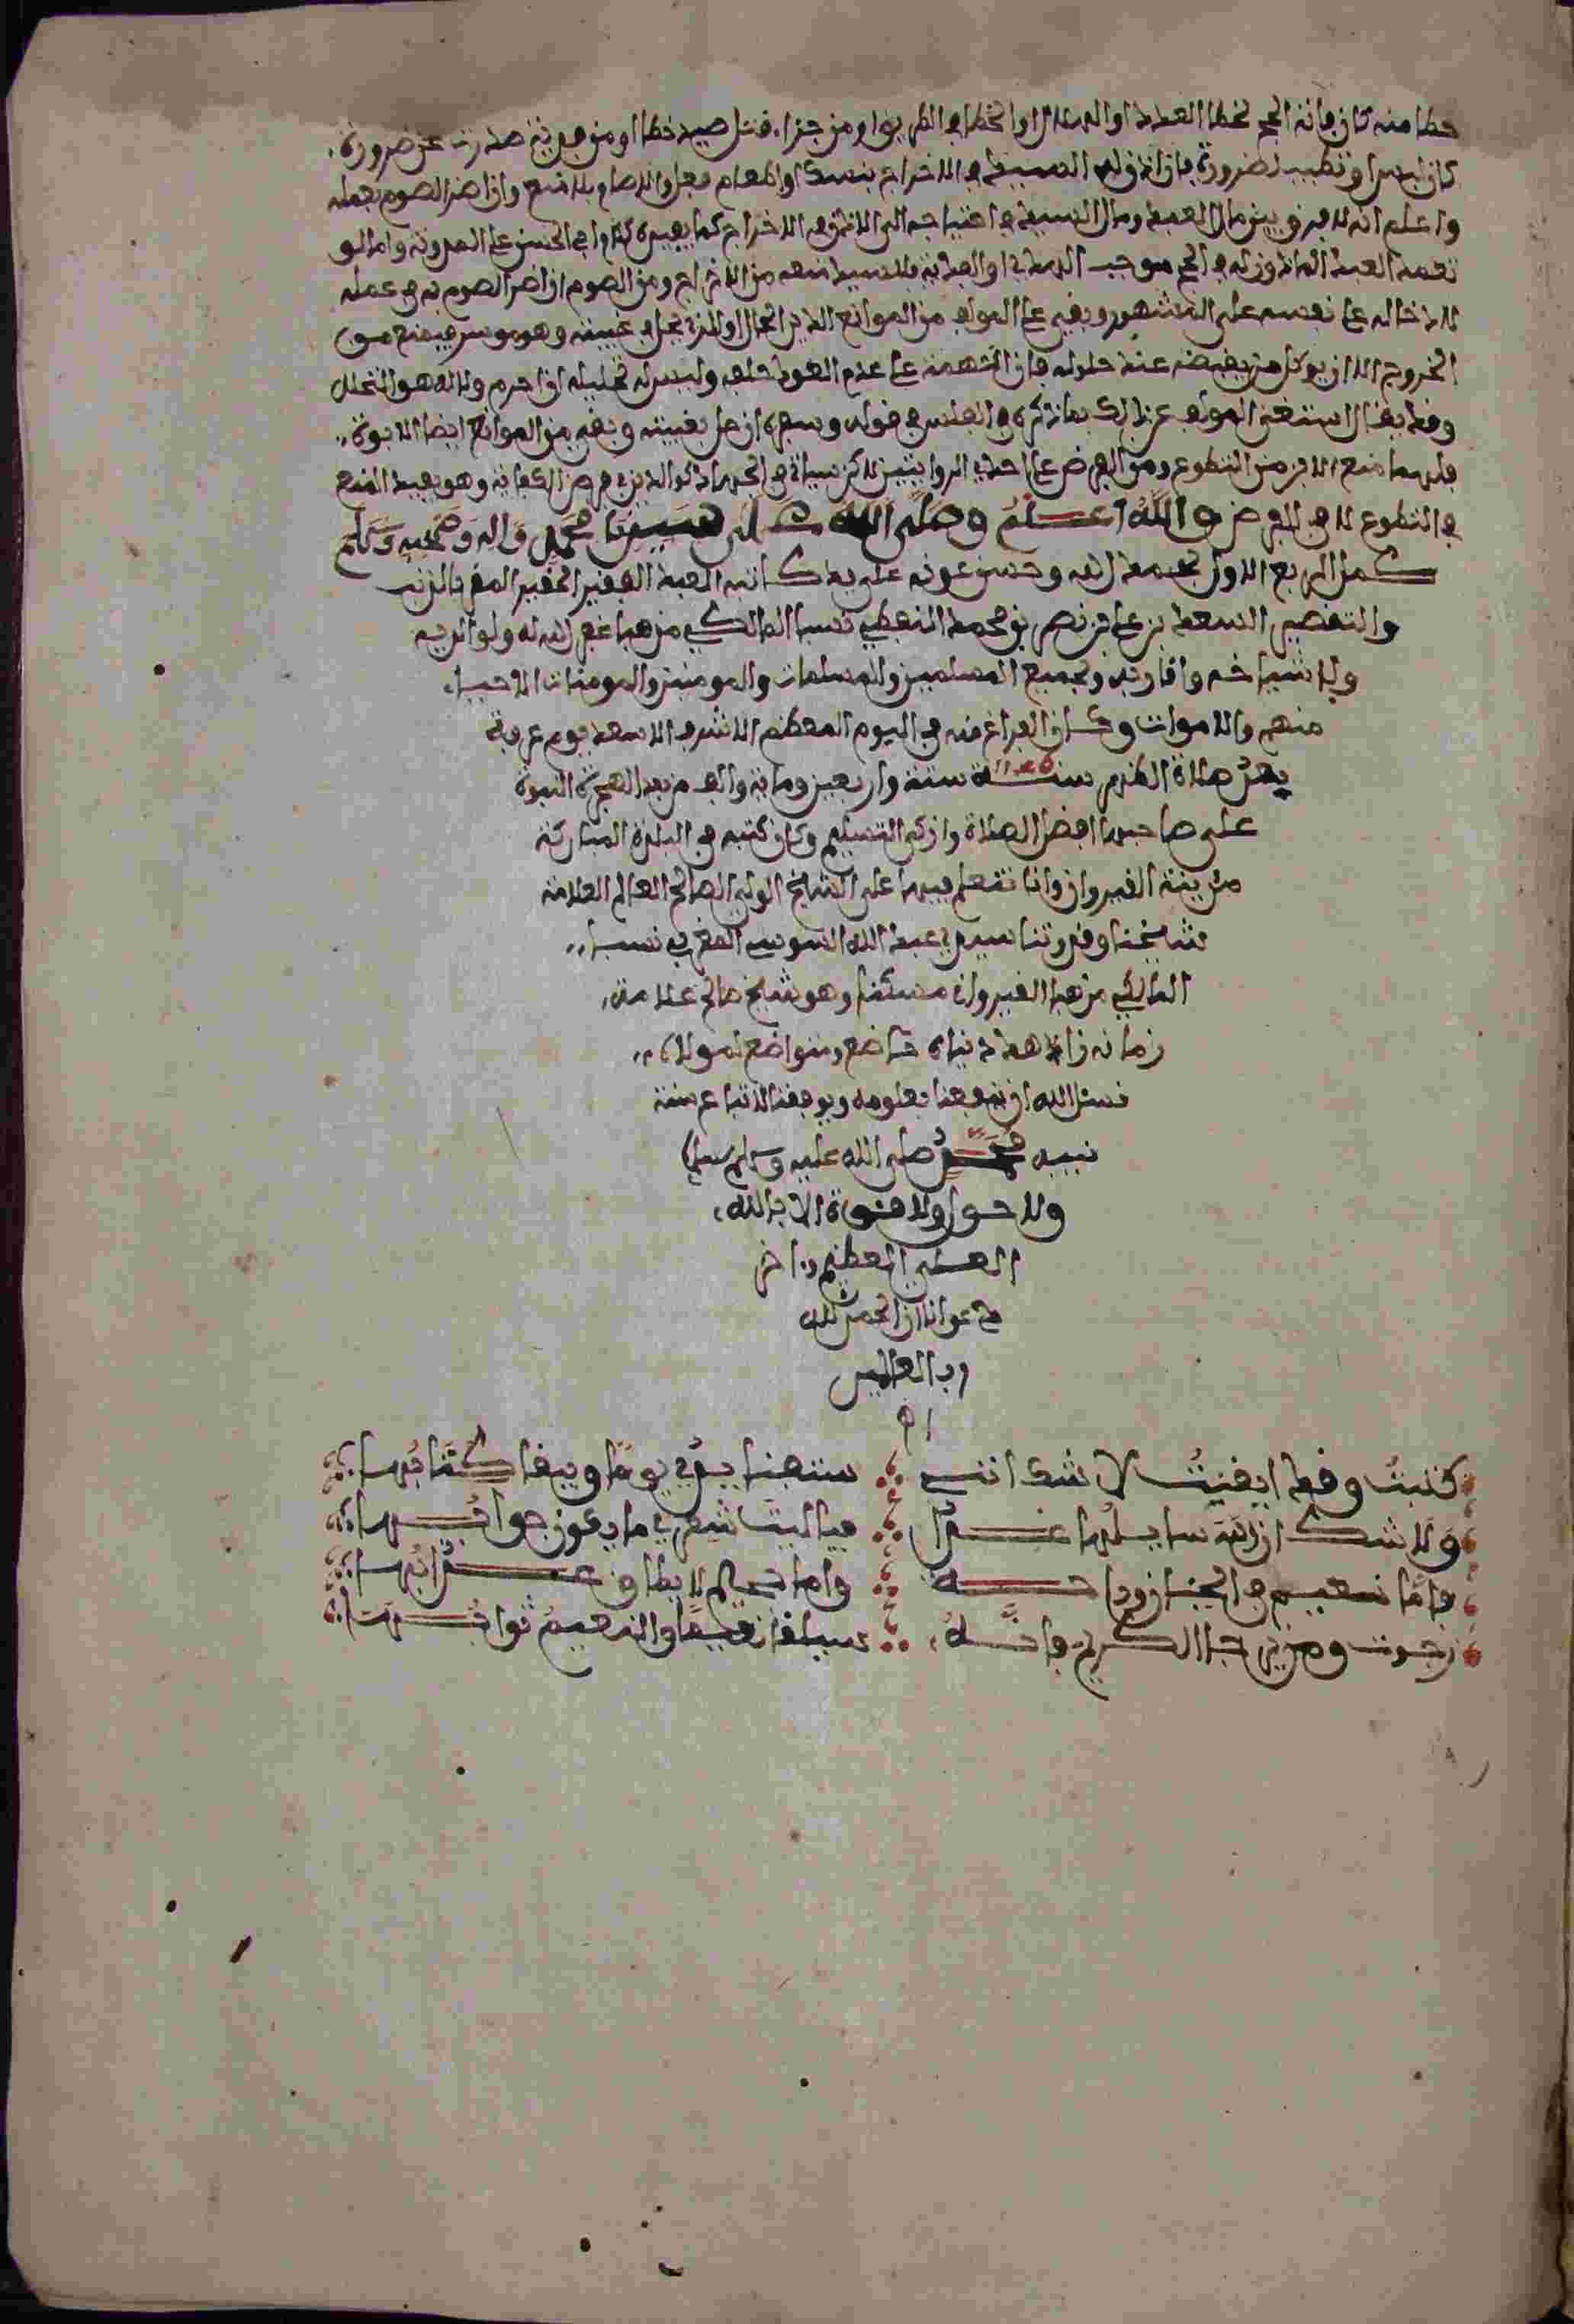 خطا منه كان فاته الحج لخطا العدد او الهلال او الخطا في الطريق او من جزاء قتل صيد خطا او من فدية صدرت عن ضرورة
كان لبس او تطيب لضرورة فان اذن له السيد في الاخراج بنسك او اطعام فعل والا صام بلا منع وان اضر الصوم بعمله
واعلم انه لا فرق بين مال العبد ومال السيد في احتياجه الى الاذن في الاخراج كما يفيده كلام ابي الحسن على المدونة واما لو
تعمد العبد الماذون له في الحج موجب الهدي او الفدية فللسيد منعه من الاخراج ومن الصوم ان اضر الصوم به في عمله
لادخاله على نفسه على المشهور وبقي على المولف من الموانع الدين الحال او الذي يحل في غيبته وهو موسر فيمنع من
الخروج الا ان يوكل من يقضيه عند حلوله فان اتهم على عدم العود حلف وليس له تحليله ان احرم ولا له هو التحلل
وقد يقال استغنى المولف عن ذلك بما ذكره في الفلس في قوله وسفره ان حل بغيبته وبقي من الموانع ايضا الابوة
فلهما منع الابن من التطوع ومن الفرض على احدى الروايتين لاكن سياتي في الجهاد والوالدين في فرض الكفاية وهو يفيد المنع
في التطوع لا في الفرض والله اعلم وصلى الله على سيدنا محمد واله وصحبه وسلم
كمل الربع الاول بحمد الله وحسن عونه على يد كاتبه العبد الفقير الحقير المقر بالذنب
والتقصير السعد بن علي بن نصر بن محمد النفطي نسبا المالكي مذهبا غفر الله له ولوالديه
ولاشياخه واقاربه ولجميع المسلمين والمسلمات والمومنين والمومنات الاحياء
منهم والاموات وكان الفراغ منه في اليوم المعظم الاشرف الاسعد يوم عرفة
بعد صلاة الظهر سنة ستة واربعين ومائة والف من بعد الهجرة النبوة
على صاحبها افضل الصلاة وازكى التسليم وكان كتبه في البلدة المباركة
مدينة القيروان وانا نتعلم فيها على الشيخ الولي الصالح العالم العلامة
شيخنا وقدوتنا سيدي عبد الله السوسي المغربي نسبا
المالكي مذهبا القيرواني مسكنا وهو شيخ صالح علامة
زمانه زاهد دنياه خاضع ومتواضع لمولاه
نسئل الله ان ينفعنا بعلومه ويوفقنا لاتباع سنة
نبيه محمد صلى الله عليه وسلم
ولا حول ولا قوة الا بالله
العلي العظيم واخر
دعوانا ان الحمد لله
رب العالمين
كتبت وقد ايقنت لا شك انني ستفنا يدي يوما ويبقا كتابها
ولا شك ان الله سايلها غدا فيا ليت شعري ما يكون جوابها
فاما نعيم في الجنان وراحة واما جحيم لا يطاق عذابها
رجوت ومن يرجا الكريم فانه سيلقا نعيما والنعيم ثوابها